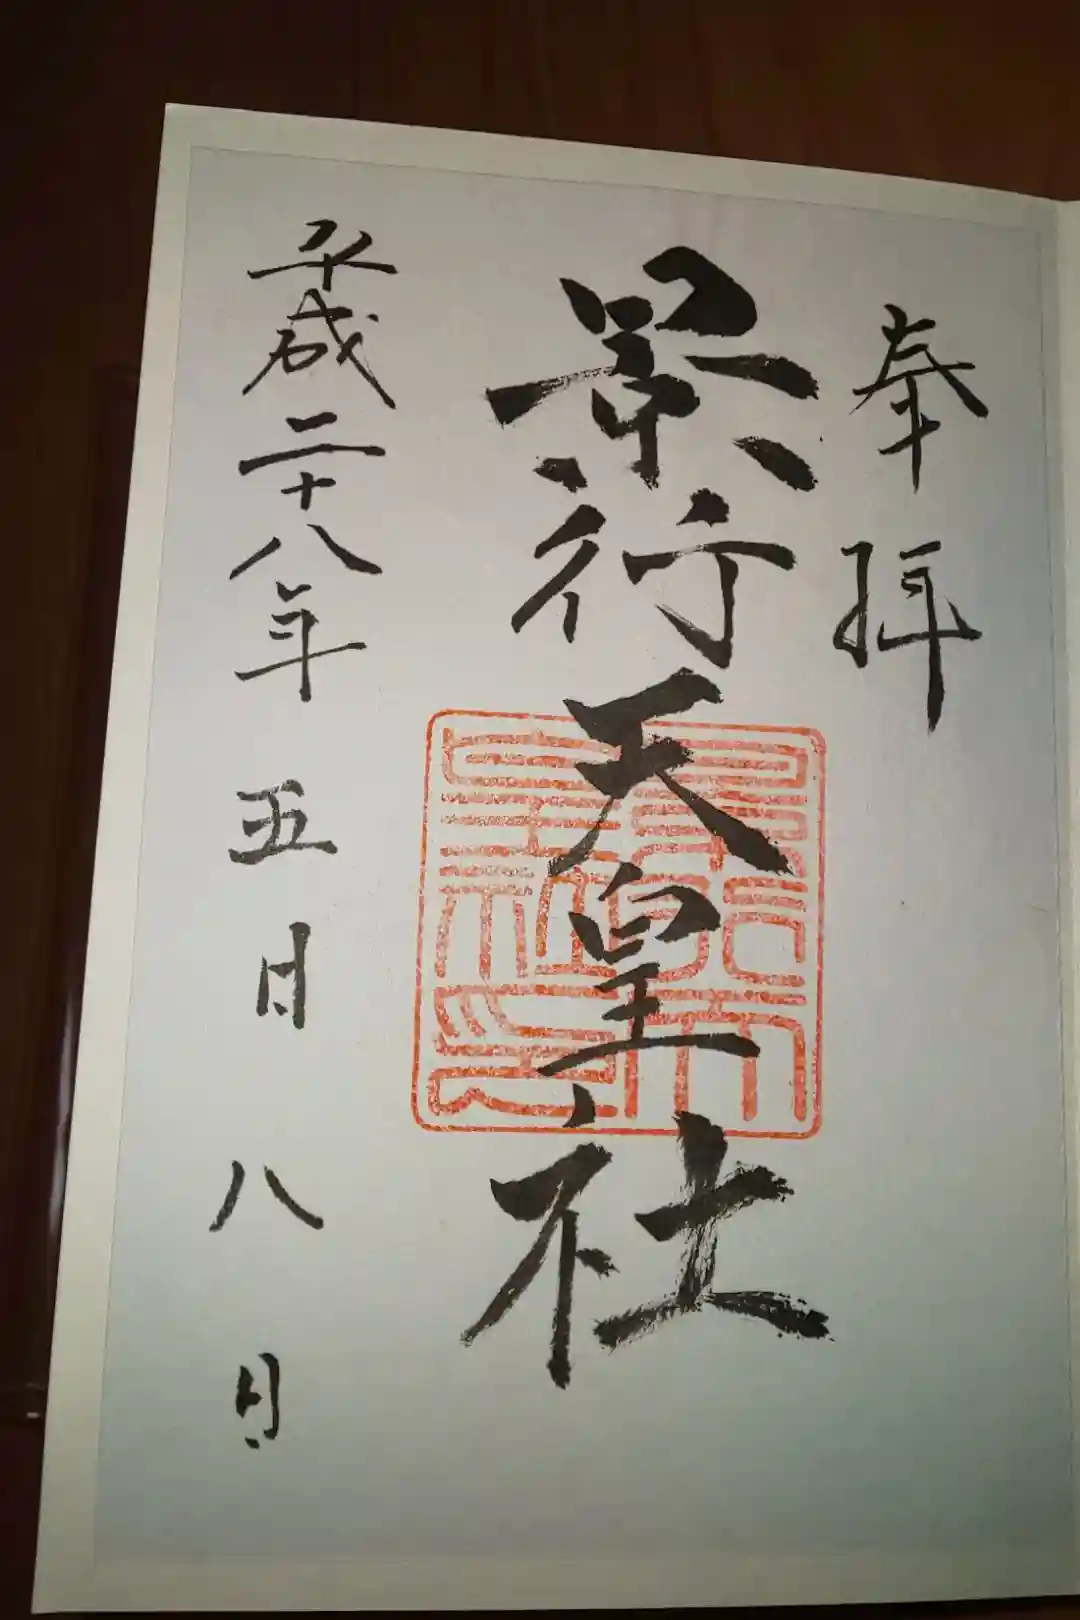 奉拝
景行天皇社
平成二十八年五月八日